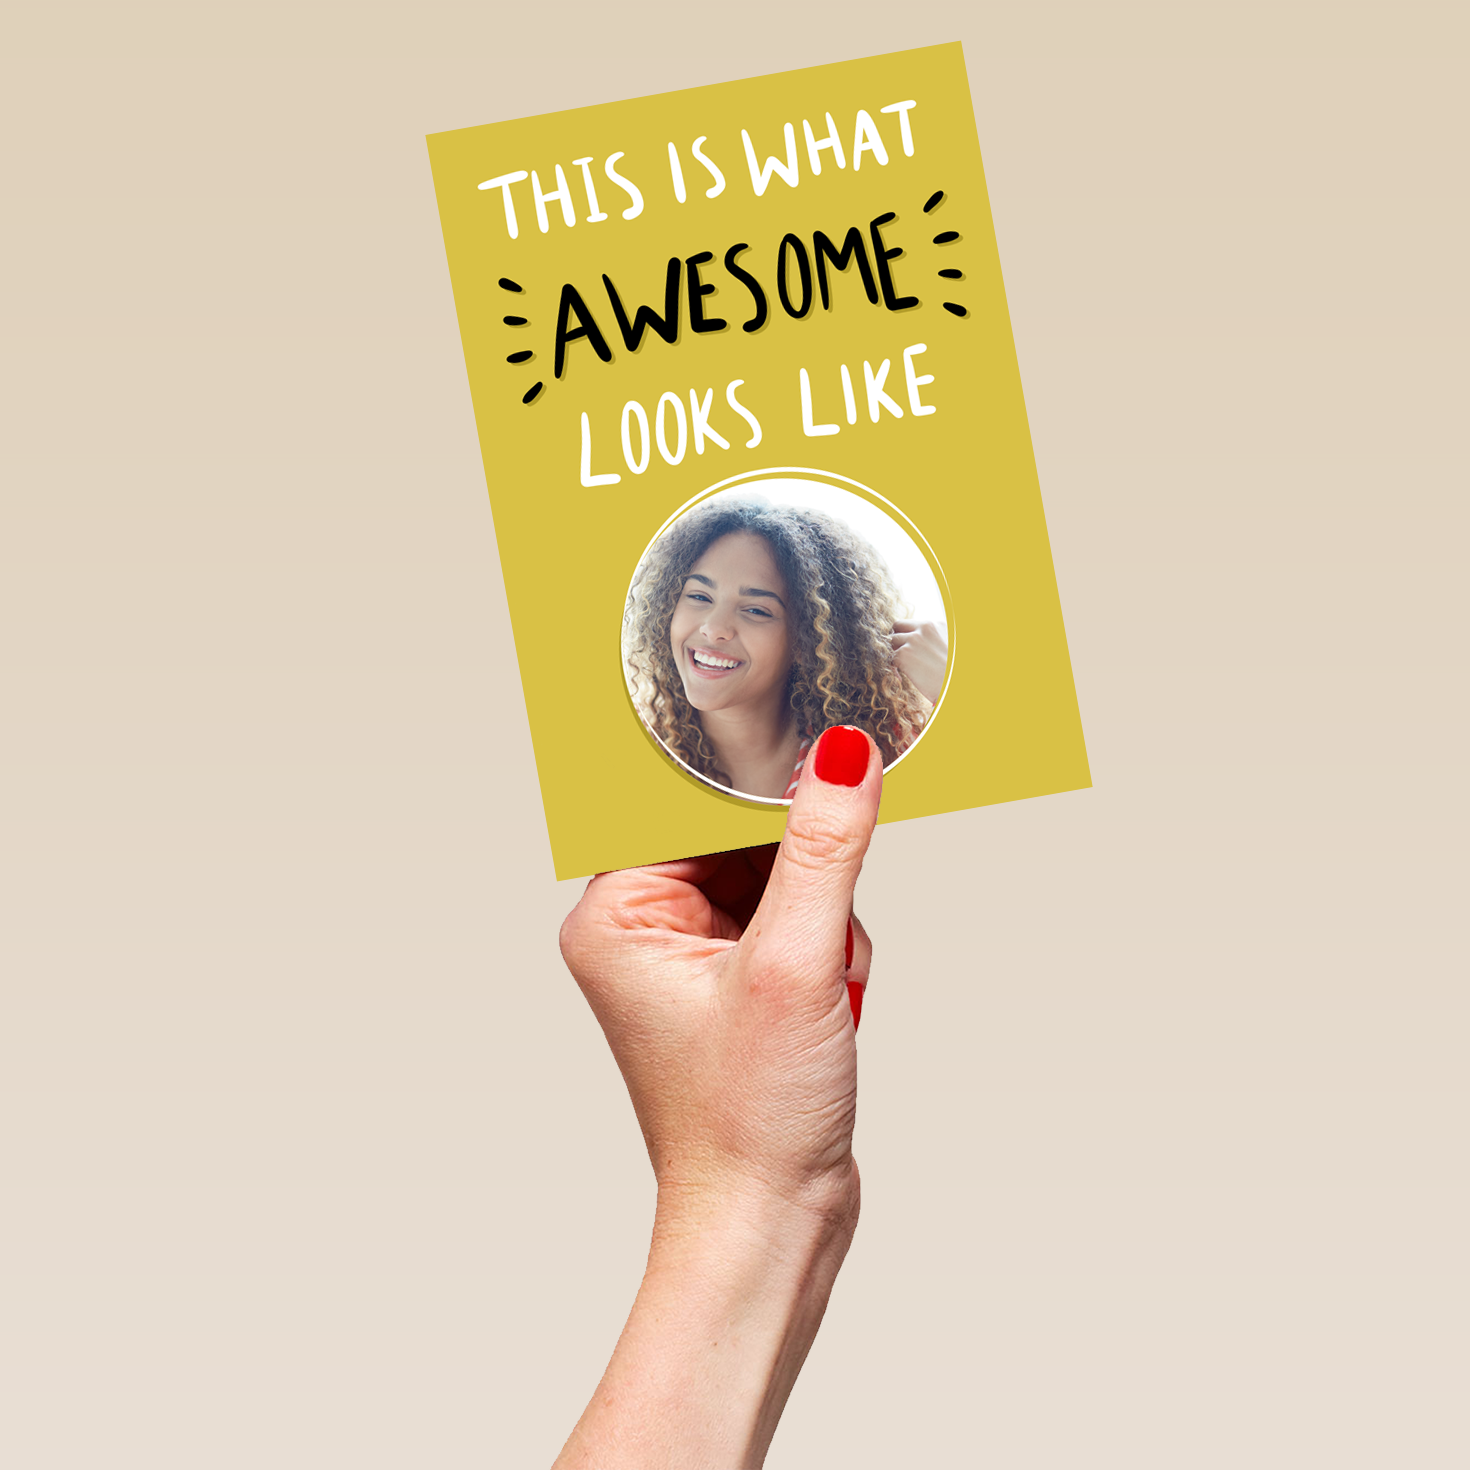 THIS IS WHAT
AWESOME
LOOKS LIKE